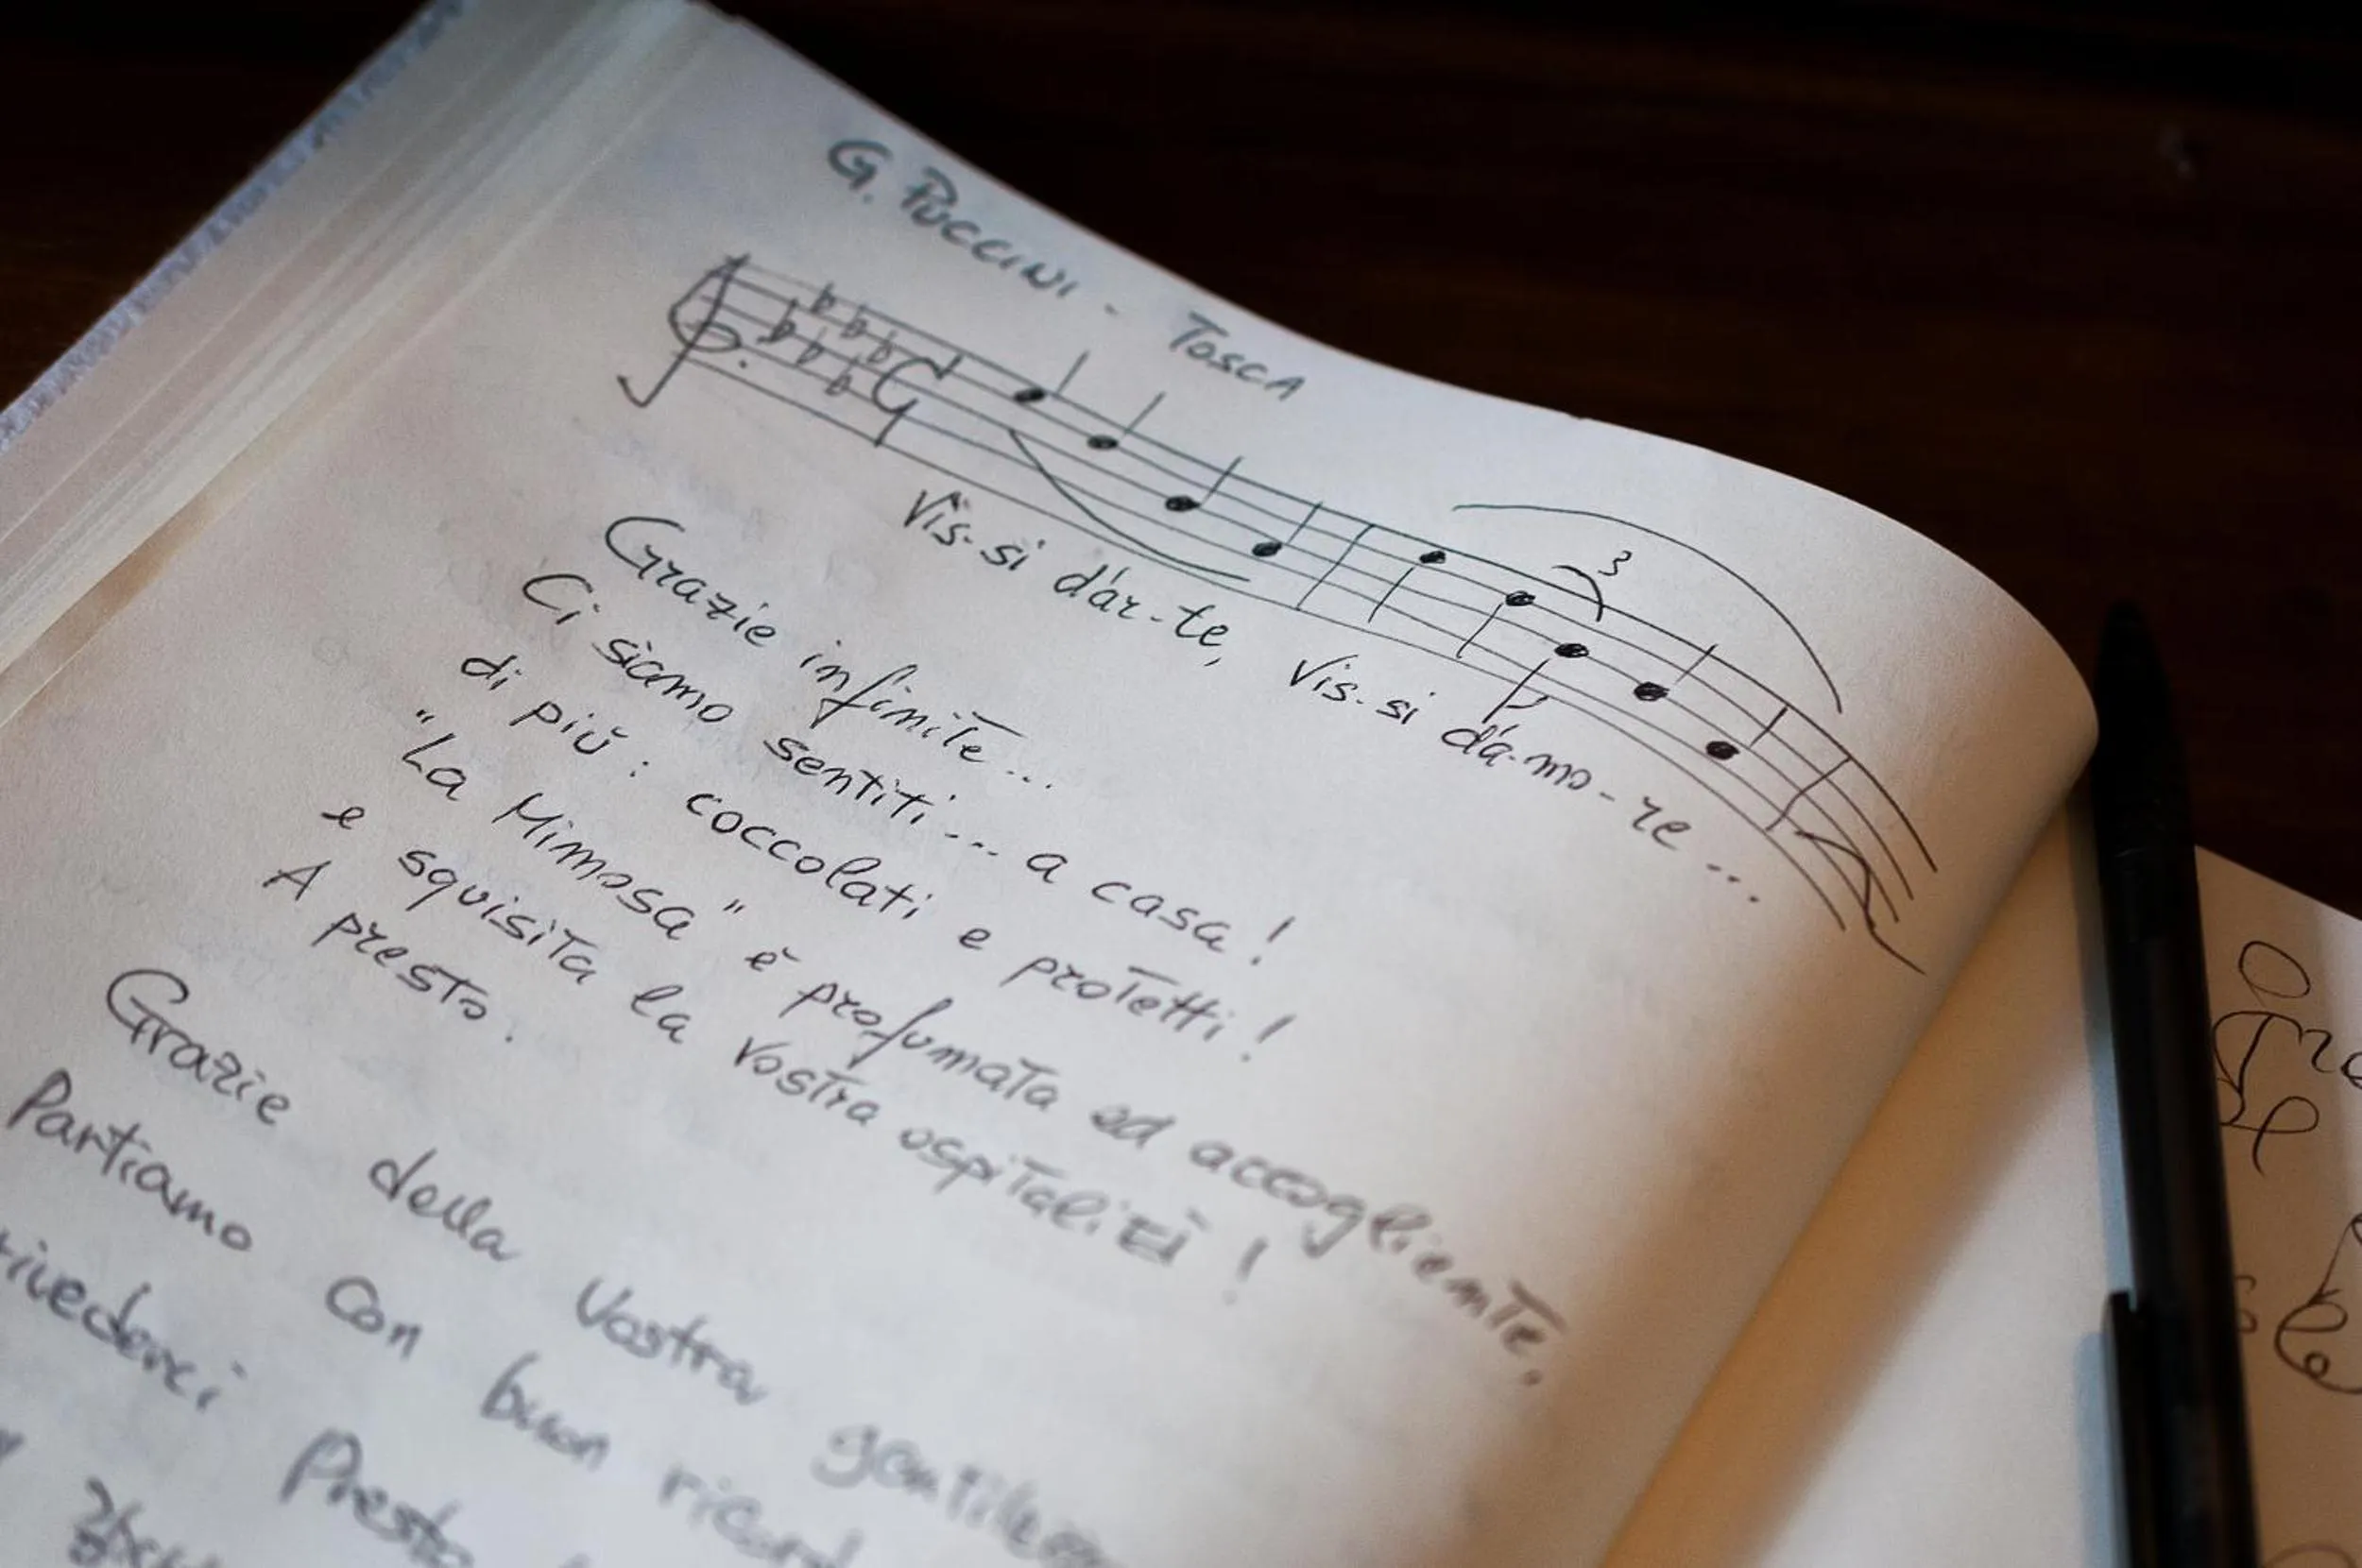 G. PUCCINI - TOSCA
3
Vis-si d'ar-te, Vis-si d'a-mo-re...
Grazie infinite...
Ci siamo sentiti... a casa!
di più: coccolati e protetti!
"La Mimosa" è profumata ed accogliente,
e squisita la vostra ospitalità!
A presto.
Grazie della Vostra
Partiamo con buon
Presto